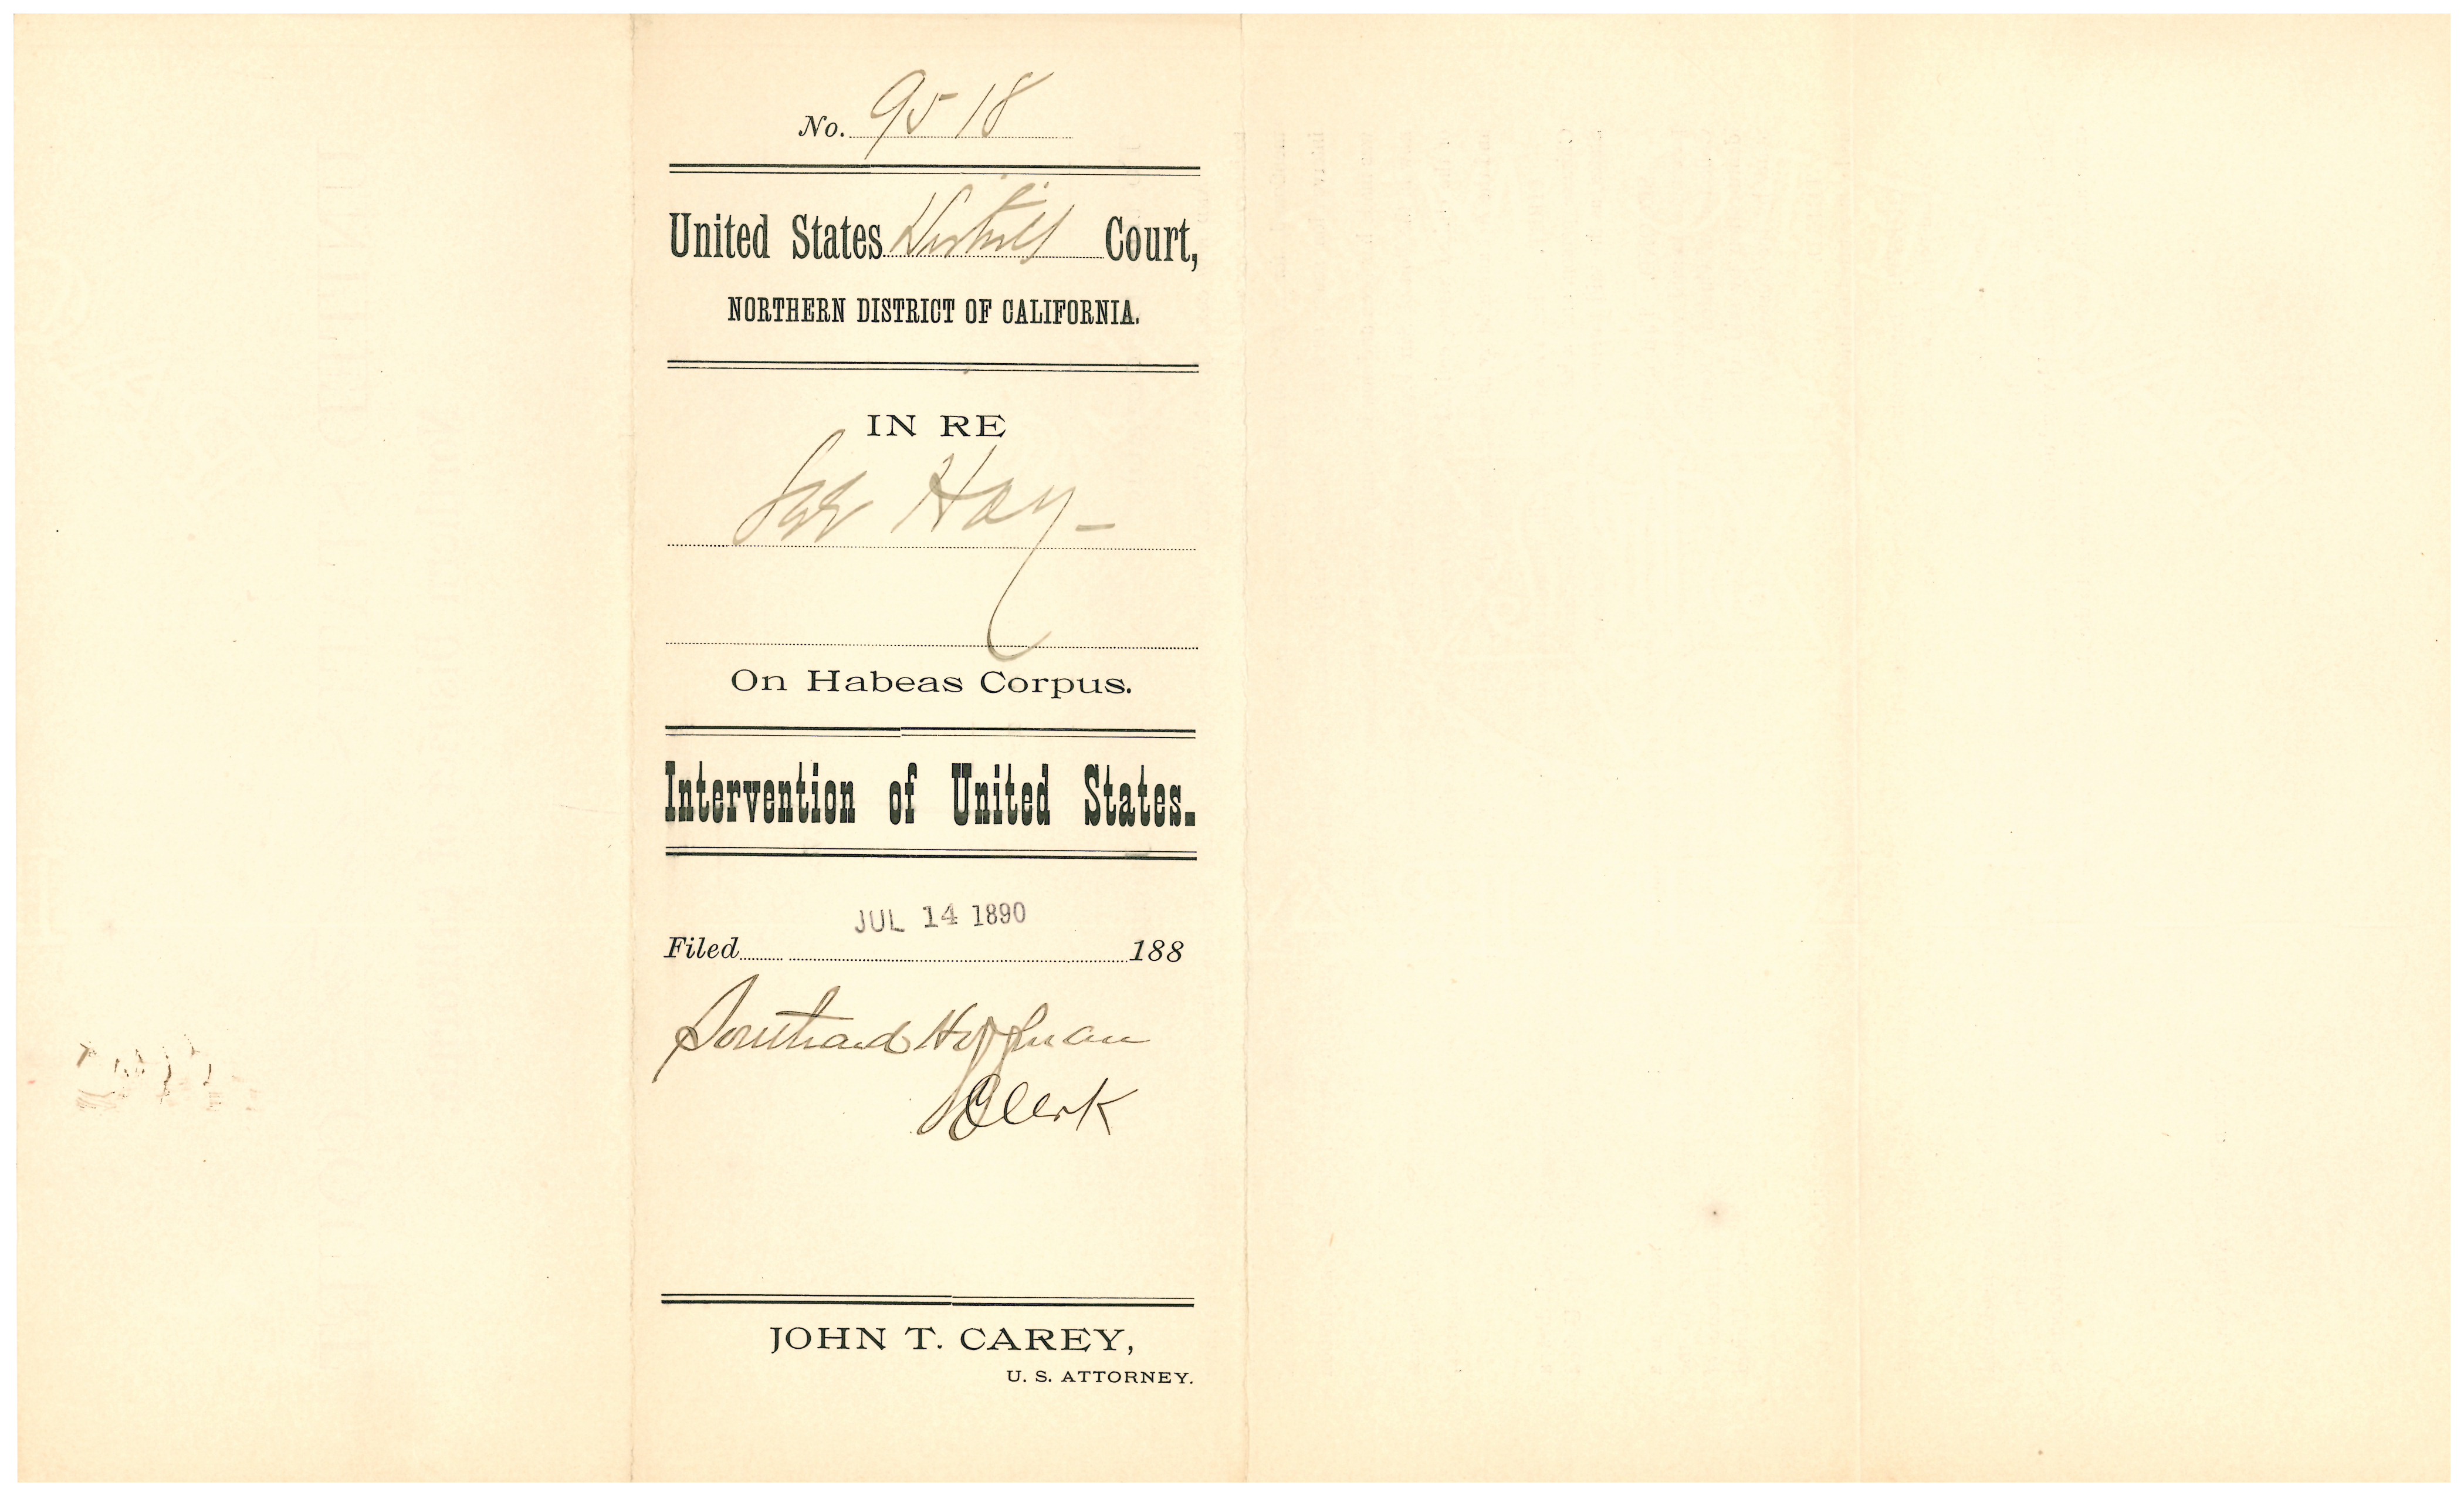 No. 9518
United States District Court,
NORTHERN DISTRICT OF CALIFORNIA.
IN RE
Hoy
On Habeas Corpus.
Intervention of United States.
JUL 14 1890
Filed 188
Southard Hoffman
Clerk
JOHN T. CAREY,
U. S. ATTORNEY.